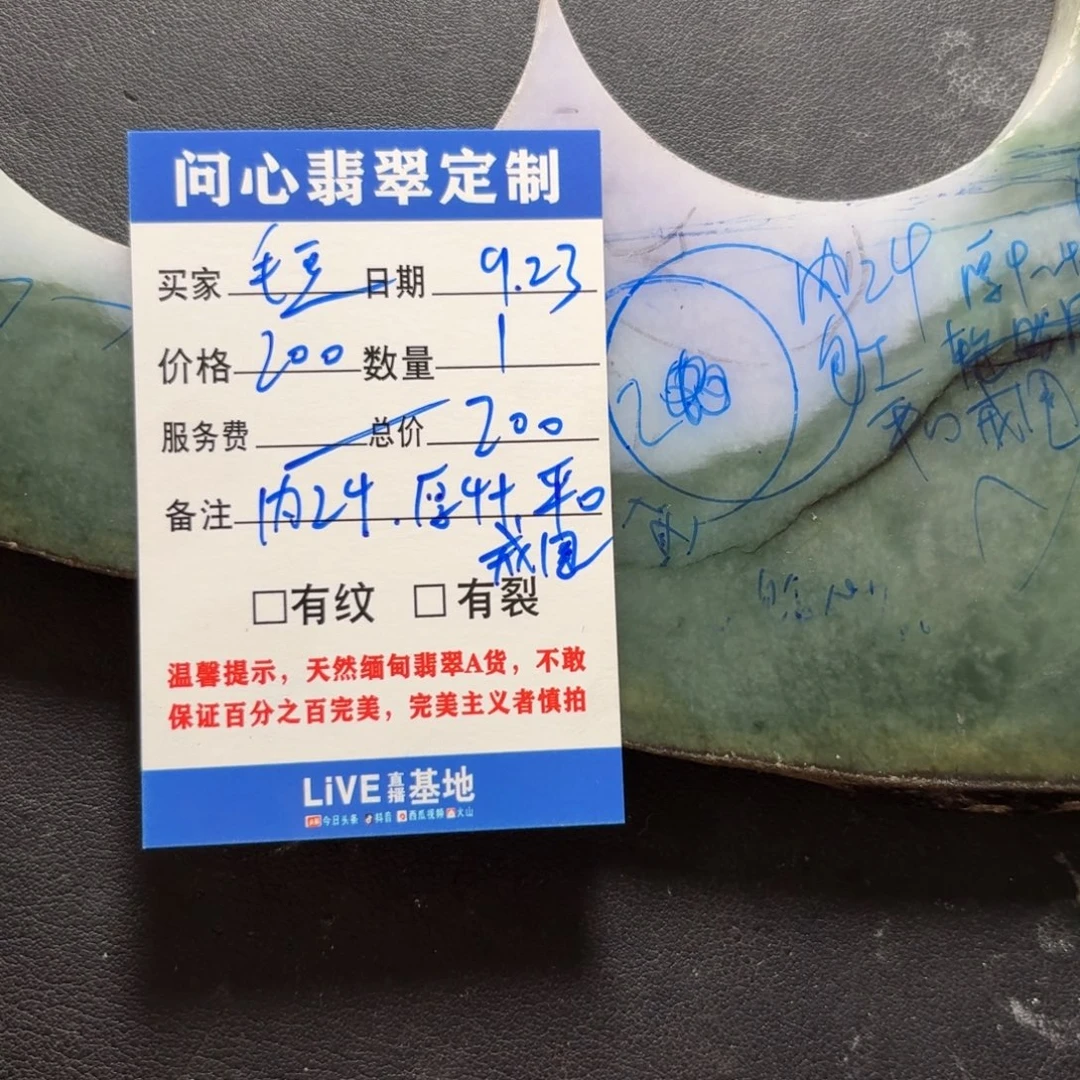 问心翡翠定制
买家 毛豆 日期 9.23
价格 200 数量 1
服务费 总价 200
备注 内24.厚4+.平口
戒围
□有纹 □有裂
温馨提示，天然缅甸翡翠A货，不敢
保证百分之百完美，完美主义者慎拍
LiVE直播基地
今日头条 抖音 西瓜视频 火山
内24 厚4
包工
平口戒围